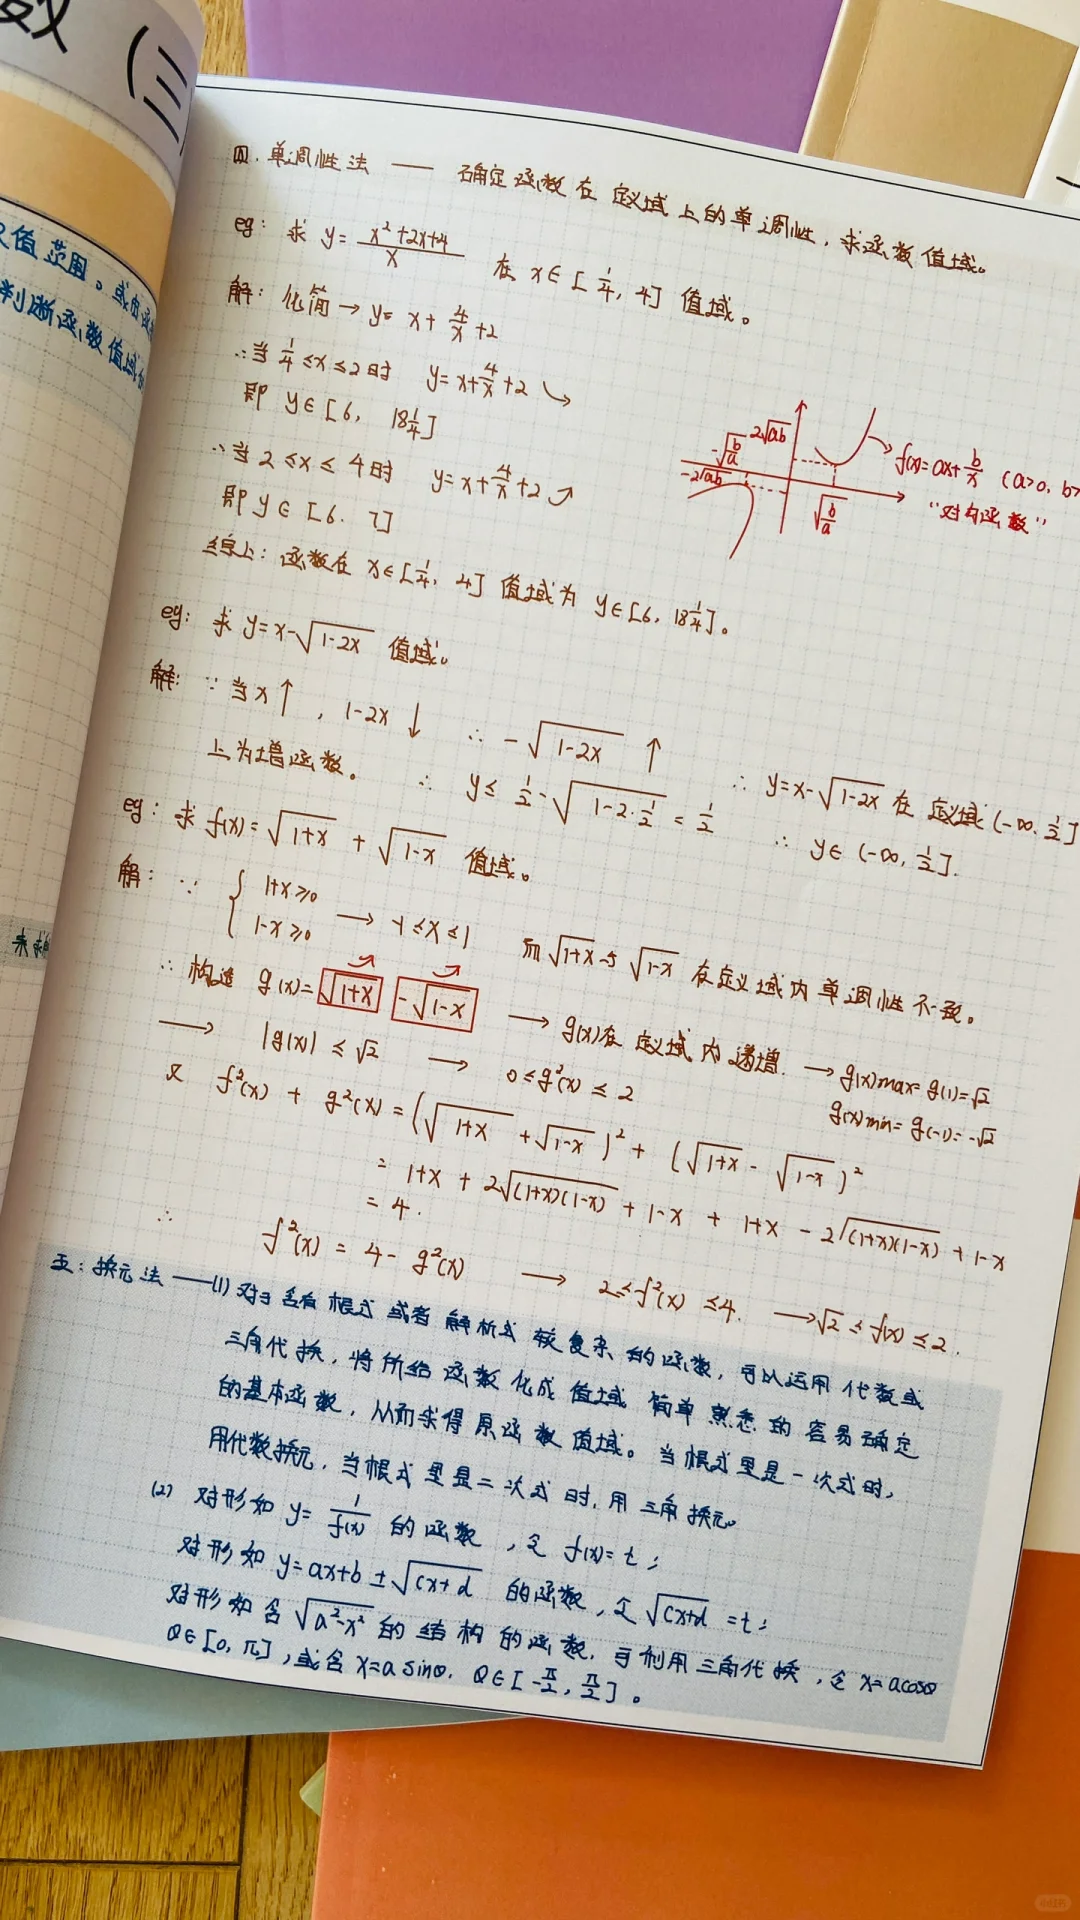 数（三
取值范围。或由函
判断函数值域
来求
四.单调性法 —— 确定函数在定义域上的单调性，求函数值域。
eg: 求 y=\frac{x²+2x+4}{x} 在 x∈[\frac{1}{4}, 4] 值域。
解：化简→ y= x+\frac{4}{x}+2
∴当 \frac{1}{4}≤x≤2时 y=x+\frac{4}{x}+2 ↘
即 y∈[6, 18\frac{1}{4}]
∴当 2≤x≤4时 y=x+\frac{4}{x}+2 ↗
即 y∈[6. 7]
综上：函数在 x∈[\frac{1}{4}, 4] 值域为 y∈[6, 18\frac{1}{4}]。
2√ab
-√\frac{b}{a}
-2√ab
√\frac{b}{a}
f(x)=ax+\frac{b}{x} (a>0, b>
"对勾函数"
eg: 求 y=x-√(1-2x) 值域。
解：∵当x↑, 1-2x↓ ∴ -√(1-2x) ↑ ∴ y=x-√(1-2x) 在定义域(-∞, \frac{1}{2}]
上为增函数。 ∴ y≤ \frac{1}{2}-√(1-2·\frac{1}{2}) = \frac{1}{2} ∴ y∈(-∞, \frac{1}{2}].
eg: 求 f(x)=√(1+x) + √(1-x) 值域。
解：∵ { 1+x≥0 1-x≥0 → -1≤x≤1 而√(1+x)与√(1-x) 在定义域内单调性不一致。
∴ 构造 g(x)=√(1+x) -√(1-x) → g(x)在定义域内递增. → g(x)max=g(1)=√2
g(x)min= g(-1)=-√2
→ |g(x)|≤√2 → 0≤g²(x)≤2
又 f²(x) + g²(x) = (√(1+x) +√(1-x))² + (√(1+x) - √(1-x))²
= 1+x + 2√((1+x)(1-x)) + 1-x + 1+x - 2√((1+x)(1-x)) + 1-x
= 4.
∴ f²(x) = 4- g²(x) → 2≤f²(x)≤4. →√2≤f(x)≤2.
五：换元法 ——(1) 对于含有根式或者解析式较复杂的函数，可以运用代数或
三角代换，将所给函数化成值域简单熟悉的容易确定
的基本函数，从而求得原函数值域。当根式里是一次式时，
用代数换元，当根式里是二次式时，用三角换元。
(2) 对形如 y=\frac{1}{f(x)} 的函数，令 f(x)=t；
对形如 y=ax+b±√(cx+d) 的函数，令√(cx+d) =t；
对形如含√(a²-x²) 的结构的函数，可利用三角代换，令 x=acosθ
θ∈[0, π]，或含 x=a sinθ. θ∈[-\frac{π}{2}, \frac{π}{2}]。
小红书